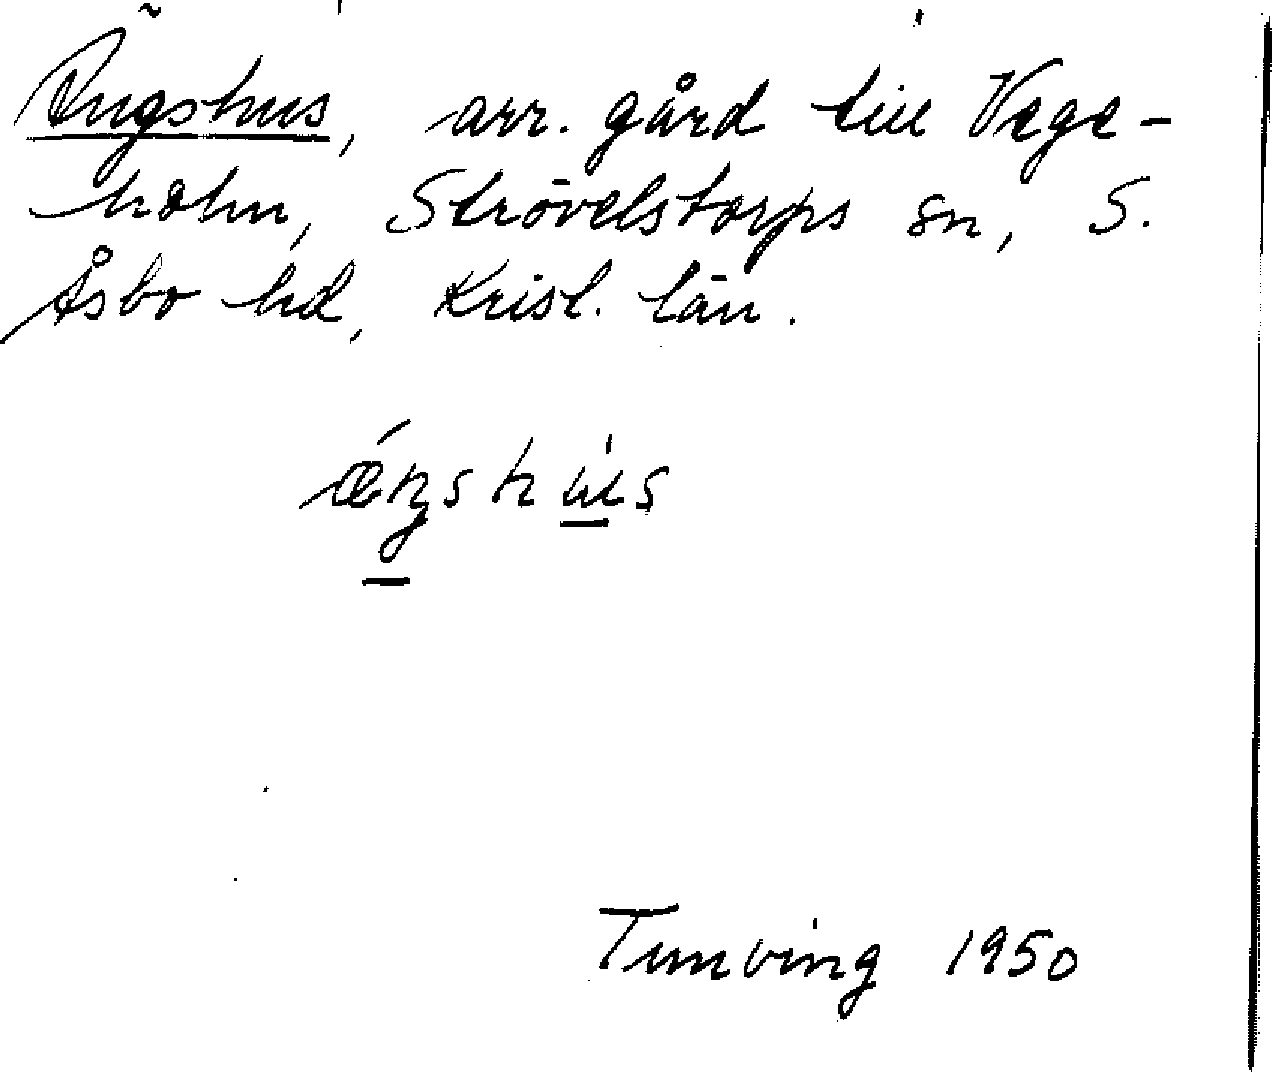 Ängshus, arr. gård till Vege-
holm, Strövelstorps sn, S.
Åsbo hd, Krist. län.
ǽŋshùs
Tunving 1950